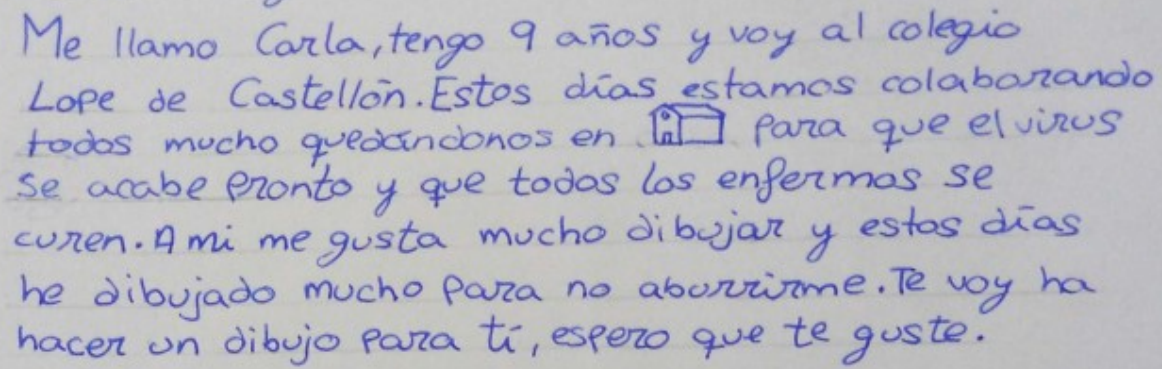 Me llamo Carla, tengo 9 años y voy al colegio
Lope de Castellón. Estos días estamos colaborando
todos mucho quedándonos en para que el virus
se acabe pronto y que todos los enfermos se
curen. A mi me gusta mucho dibujar y estos días
he dibujado mucho para no aburrirme. Te voy ha
hacer un dibujo para tí, espero que te guste.